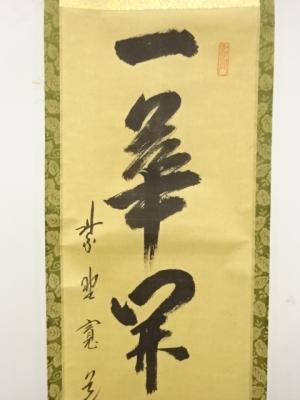 一華開
紫野寛道